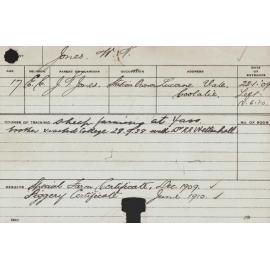 Jones, W.
AGE RELIGION PARENT OR GUARDIAN OCCUPATION ADDRESS DATE OF ENTRANCE
17 C.E. J. Jones. Station Owner Lucerne Vale, 22.1.'09
Coolatie. Sept.
COURSE OF TRAINING Sheep farming at Yass.
brother visited College 28.9.38 with
ROOM No.
RESULTS Special Farm Certificate, Dec. 1909.
Piggery Certificate June 1910.